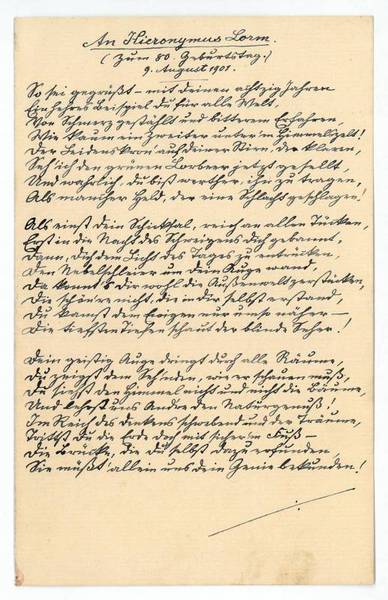 An Hieronymus Lorm.
(Zum 80. Geburtstag.)
9. August 1901.
So sei gegrüßt – mit deinen achtzig Jahren
Ein hehres Beispiel du für alle Welt,
Von Schmerz gestählt und bitterem Erfahren,
Wie kaum ein Zweiter unter'm Himmelszelt!
Der Leidenskron' auf deiner Stirn, der klaren,
Seh' ich den grünen Lorbeer jetzt gesellt,
Und wahrlich, du bist werther, ihn zu tragen,
Als mancher Held, der eine Schlacht geschlagen!
Als einst dein Schicksal, reich an allen Tücken,
Erst in die Nacht des Schweigens dich gebannt,
Dann, dich dem Licht des Tages zu entrücken,
Den Nebelschleier um dein Auge wand,
Da konnt' es dir wohl die Außenwelt zerstücken,
Die schön're nicht, die in dir selbst erstand,
Du kamst dem Ewigen nur umso näher —
Die tiefsten Tiefen schaut der blinde Seher!
Dein geistig Auge dringt durch alle Räume,
Du zeigst dem Seh'nden, wie er schauen muß,
Du siehst den Himmel nicht und nicht die Bäume,
Und lehrst uns Andre den Naturgenuß!
Im Reich des Denkens schwebend und der Träume,
Trittst du die Erde doch mit sicher'm Fuß —
Die Brücke, die du selbst dazu erfunden,
Sie müßt' allein uns dein Genie bekunden!